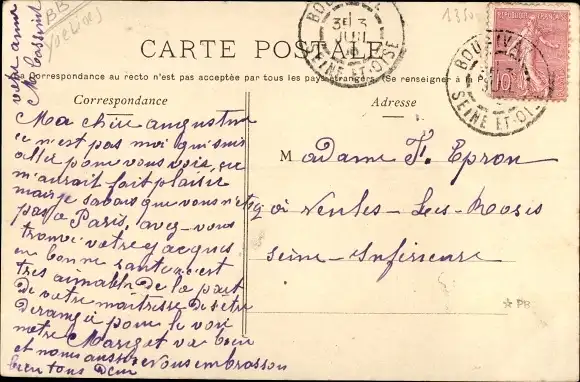 CARTE POSTALE
La Correspondance au recto n'est pas acceptée par tous les pays étrangers. (Se renseigner à la Poste
Correspondance
Ma chère augustine
ce n'est pas moi qui suis
allé pour vous voir, ce
m'aurait fait plaisir
mais je savais que vous n'étie
pas à Paris, avez-vous
trouvé votre jacques
en bonne santé c'est
très aimable de la part
de votre maîtresse de s'être
derangé pour le voir
notre Marg et va bien
et nous aussi Nous embrassons
bien tous deux
votre amie
M Cassint
Adresse
Madame F. Epron
à Ventes-Les-Rosis
Seine-Inférieure
BOUGIVAL
3E 3
JUIL
SEINE-ET-OISE
BOUGIVAL
SEINE-ET-OISE
REPUBLIQUE FRANÇAISE
10c
BB
yvelines
1350
*PB